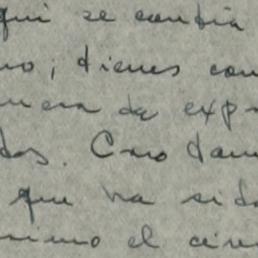 qui se cambia
no, tienes con
nera de exp
dos. Creo tam
que ha sido
nimo el cine